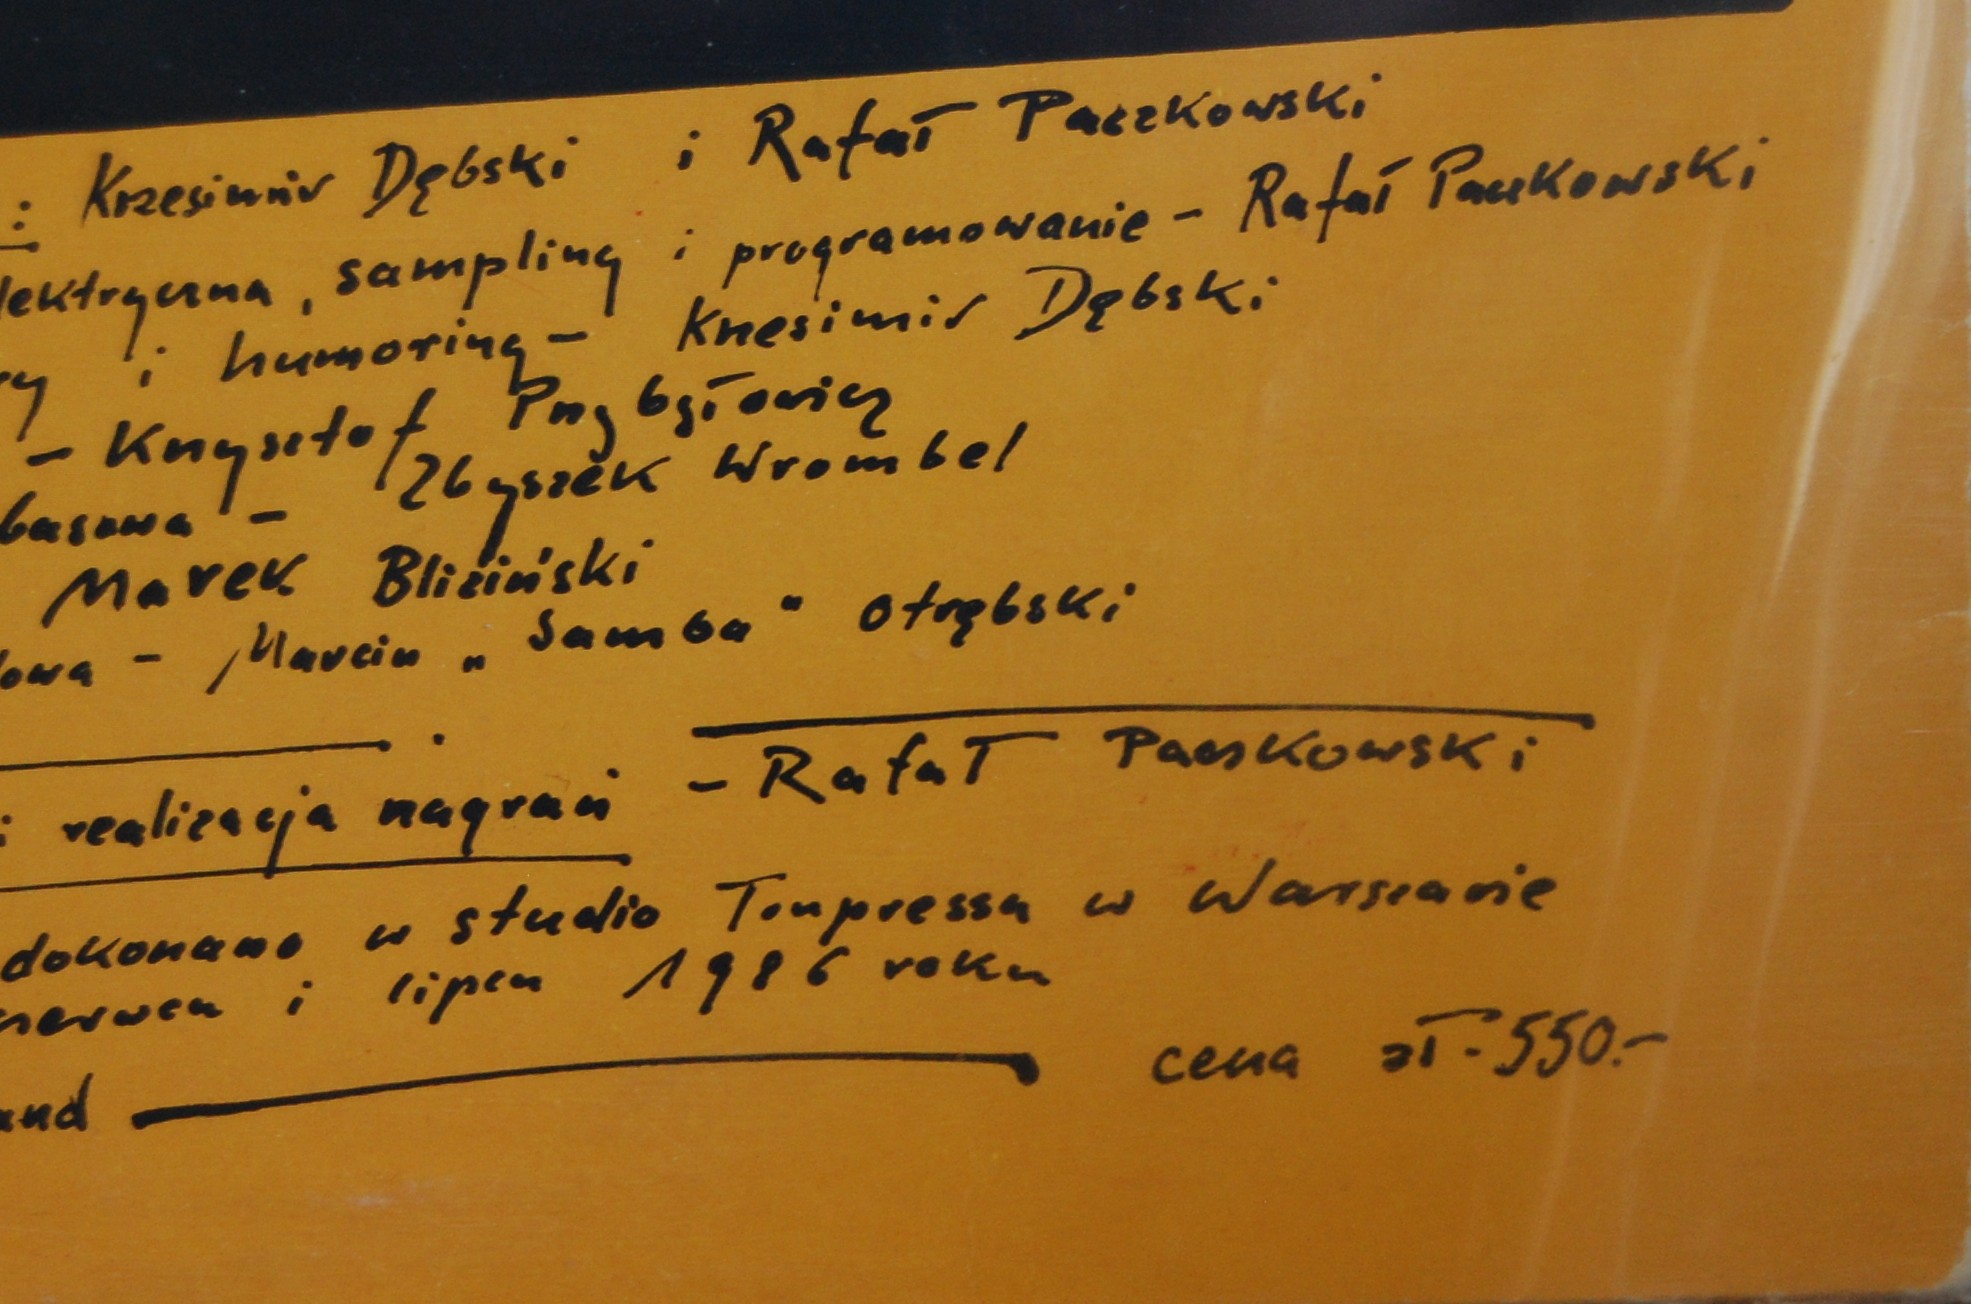 : Krzesimir Dębski i Rafał Paczkowski
lektryczna, sampling i programowanie - Rafał Paczkowski
ry i humoring - Krzesimir Dębski
- Krzysztof Przybyłowicz
basowa - Zbyszek Wrombel
Marek Bliziński
łowa - Marcin „Samba" Otrębski
i realizacja nagrań - Rafał Paczkowski
dokonano w studio Tonpressu w Warszawie
czerwcu i lipcu 1986 roku
and cena zł. 550.-